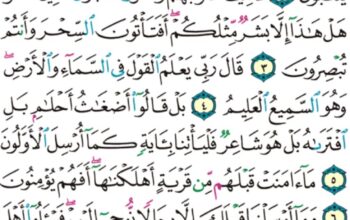 هَلْ هَٰذَآ إِلَّا بَشَرٌ مِّثْلُكُمْ ۖ أَفَتَأْتُونَ ٱلسِّحْرَ وَأَنتُمْ
تُبْصِرُونَ ٣ قَالَ رَبِّى يَعْلَمُ ٱلْقَوْلَ فِى ٱلسَّمَآءِ وَٱلْأَرْضِ ۖ
وَهُوَ ٱلسَّمِيعُ ٱلْعَلِيمُ ٤ بَلْ قَالُوٓا۟ أَضْغَٰثُ أَحْلَٰمٍۭ بَلِ
ٱفْتَرَىٰهُ بَلْ هُوَ شَاعِرٌ فَلْيَأْتِنَا بِـَٔايَةٍ كَمَآ أُرْسِلَ ٱلْأَوَّلُونَ
٥ مَآ ءَامَنَتْ قَبْلَهُم مِّن قَرْيَةٍ أَهْلَكْنَٰهَآ ۖ أَفَهُمْ يُؤْمِنُونَ
٦